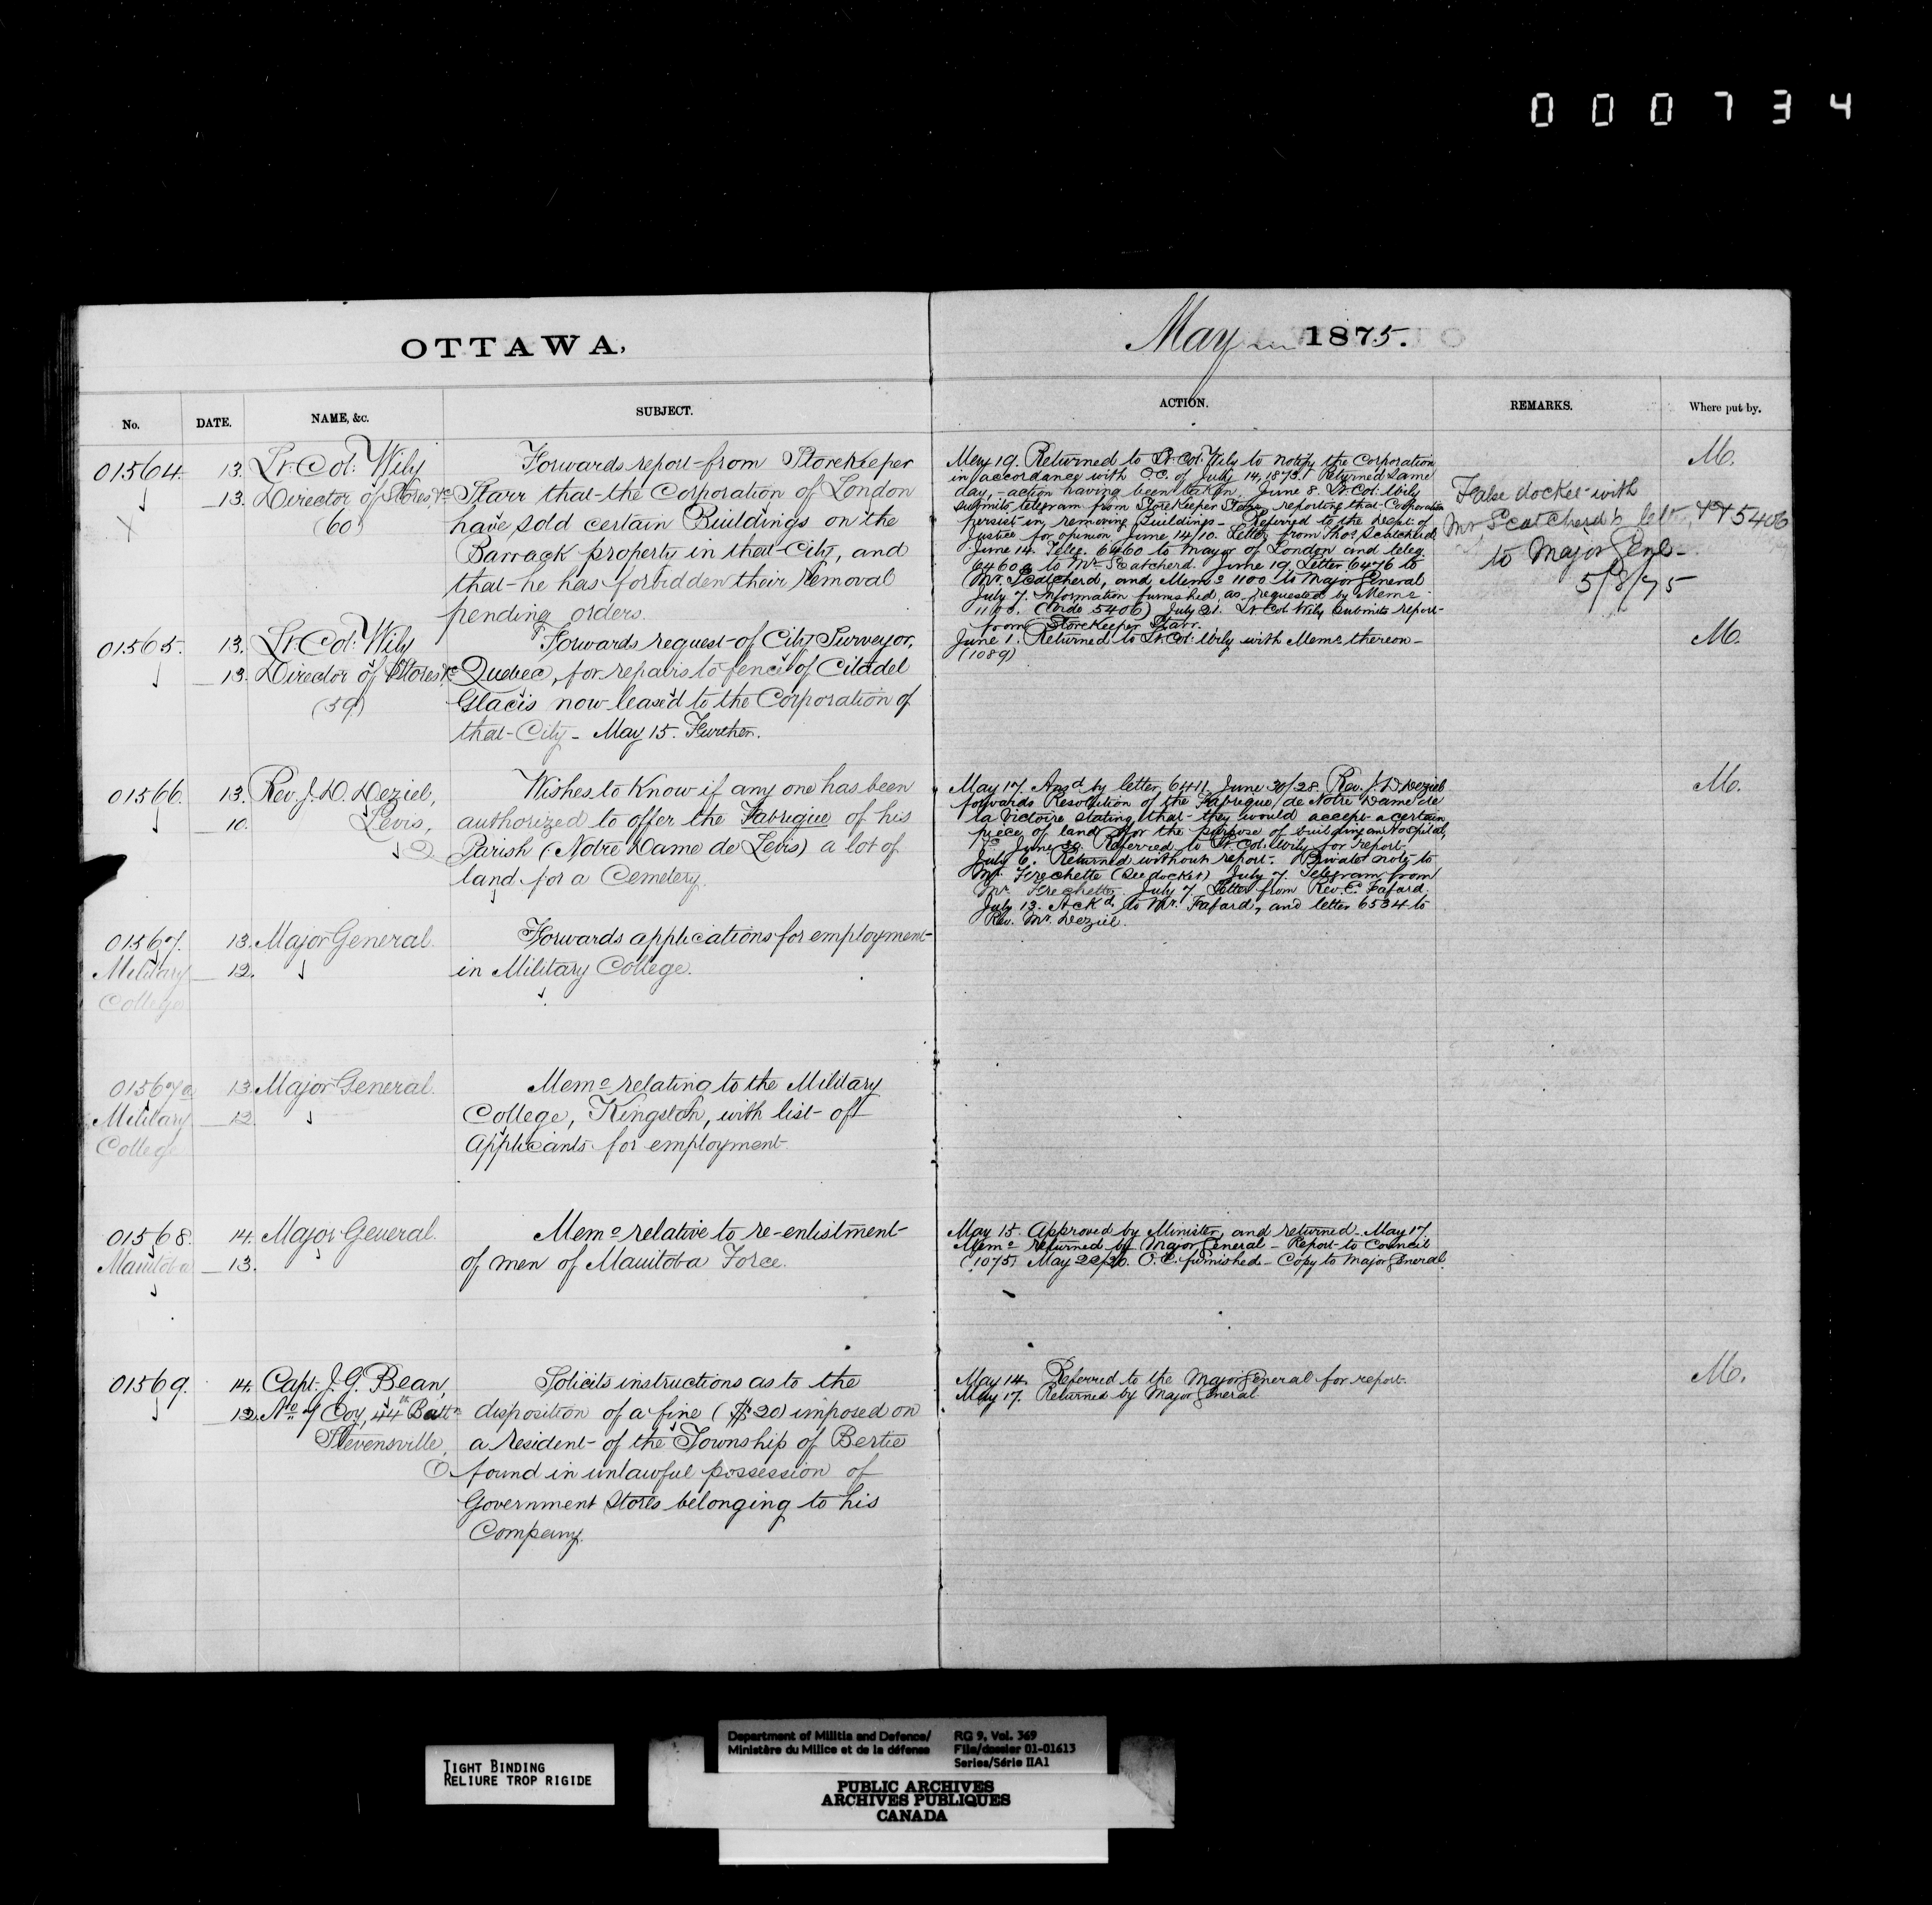 000734
OTTAWA,
May 1875.
No.
DATE.
NAME, &c.
SUBJECT.
ACTION.
REMARKS.
Where put by.
01564.
13.
13.
Lt. Col: Wily
Director of Stores, &c
(60)
Forwards report from Storekeeper
Starr that the Corporation of London
have sold certain Buildings on the
Barrack property in that City, and
that he has forbidden their removal
pending orders.
May 19. Returned to Lt. Col: Wily to notify the Corporation
in accordance with O.C. of July 14, 1873. Returned same
day, - action having been taken. June 8. Lt. Col: Wily
submits telegram from Storekeeper Starr reporting that Corporation
persist in removing Buildings - Referred to the Dept. of
Justice for opinion. June 14/10. Letter from Thos. Scatcherd
June 14. Teleg. 6460 to Mayor of London and teleg.
6460a to Mr. Scatcherd. June 19. Letter 6476 to
Mr. Scatcherd, and Memo 1100 to Major General
July 7. Information furnished, as requested by Memo
1100. (Vide 5406) July 21. Lt Col: Wily submits report
from Storekeeper Starr.
False docket with
Mr. Scatcherd's lett. 5406
to Major Genl -
5/8/75
M.
01565.
13.
13.
Lt. Col: Wily
Director of Stores &c
(59)
Forwards request of City Surveyor,
Quebec, for repairs to fence of Citadel
Glacis now leased to the Corporation of
that City - May 15. Further.
June 1. Returned to Lt. Col: Wily with Memo thereon -
(1089)
M.
01566.
13.
10.
Rev. J. D. Deziel,
Levis,
Q
Wishes to know if any one has been
authorized to offer the Fabrique of his
Parish (Notre Dame de Levis) a lot of
land for a Cemetery.
May 17. Ansd by letter 6411. June 30/28. Rev. J. D. Deziel
forwards Resolution of the Fabrique de Notre Dame de
la Victoire stating that they would accept a certain
piece of land for the purpose of building an Hospital,
&c. June 30. Referred to Lt. Col: Wily for report.
July 6. Returned without report. Private note to
Mr. Frechette (See docket) July 7. Telegram from
Mr. Frechette. July 7. Letter from Rev. E. Fafard.
July 13. Ackd. to Mr. Fafard, and letter 6534 to
Rev. Mr. Deziel.
M.
01567.
Military
College
13.
12.
Major General.
Forwards applications for employment
in Military College.
01567a
Military
College
13.
12
Major General.
Memo relating to the Military
College, Kingston, with list of
Applicants for employment.
01568.
Manitoba
14.
13.
Major General.
Memo relative to re-enlistment
of men of Manitoba Force.
May 15. Approved by Minister, and returned. May 17.
Memo returned by Major General - Report to Council
(1075) May 22/20. O.C. furnished - Copy to Major General.
01569.
14.
12.
Capt. J. G. Bean,
No. 7 Coy, 44th Battn
Stevensville,
O.
Solicits instructions as to the
disposition of a fine ($20) imposed on
a resident of the Township of Bertie
found in unlawful possession of
Government Stores belonging to his
Company.
May 14. Referred to the Major General for report.
May 17. Returned by Major General
M.
TIGHT BINDING
RELIURE TROP RIGIDE
Department of Militia and Defence/
Ministère du Milice et de la défense
RG 9, Vol. 369
File/dossier 01-01613
Series/Série IIA1
PUBLIC ARCHIVES
ARCHIVES PUBLIQUES
CANADA